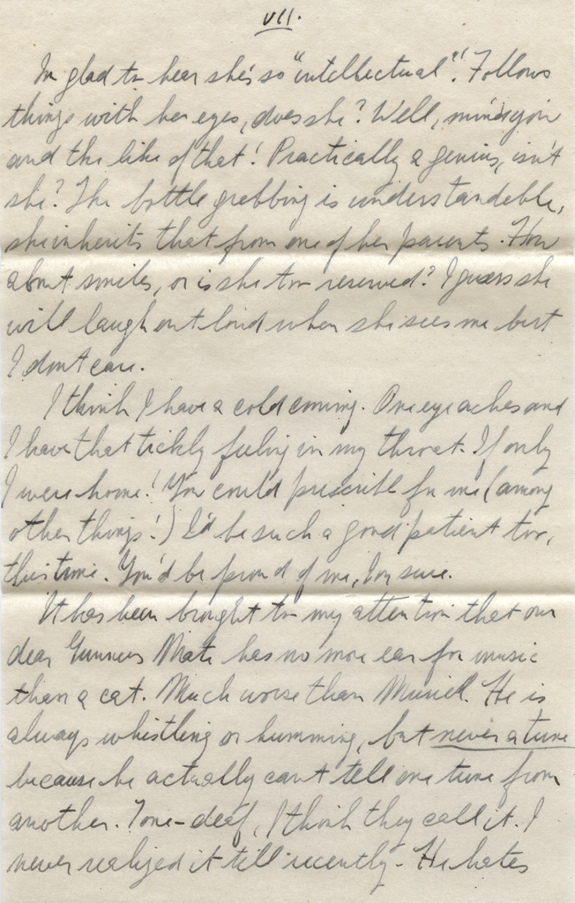 VII.
I'm glad to hear she's so "intellectual"! Follows
things with her eyes, does she? Well, mind you
and the like of that! Practically a genius, isn't
she? The bottle grabbing is understandable,
she inherits that from one of her parents. How
about smiles, or is she too reserved? I guess she
will laugh out loud when she sees me but
I don't care.
I think I have a cold coming. One eye aches and
I have that tickly feeling in my throat. If only
I were home! You could prescribe for me (among
other things!) I'd be such a good patient too,
this time. You'd be proud of me, I'm sure.
It has been brought to my attention that our
dear Gunners Mate has no more ear for music
than a cat. Much worse than Muriel. He is
always whistling or humming, but never a tune
because he actually can't tell one tune from
another. Tone-deaf, I think they call it. I
never realized it till recently - He hates